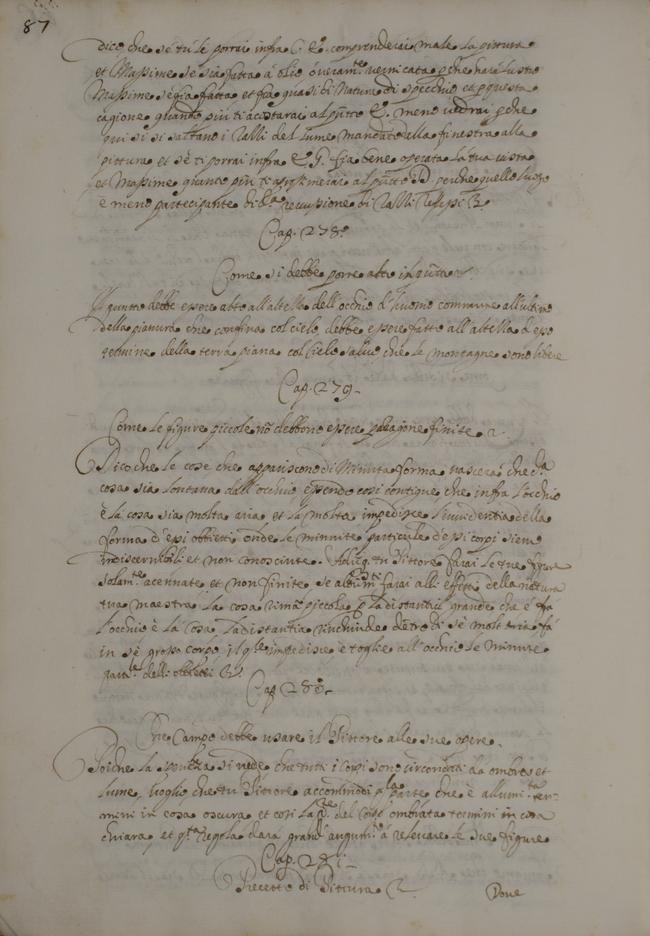 87
dico che se tu te porrai infra C. et comprenderai male la pittura
et Massime se sia fatta à olio ò veram.te vernicata perche harà lustro
Massime se sia fatta et fia quasi di natura di specchio et questa
cagione quanto più ti acostarai al punto meno vedrai perche
qui vi si saltano i Razzi del lume mandato alla finestra alla
pittura et sè ti porrai infra fia bene operata la tua vista
et Massime quanto più ti apressimerai al punto D perche quello luogo
è meno partecipante di d.a percussione di Razzi
Cap. 278.
Come si debbe porre alto il punto
Il punto debbe essere alto all'altezza dell'occhio d'huomo commune all'ultimo
della pianura che confina col cielo debbe essere fatto all'altezza d'esso
termine della terra piana col cielo salvo che le montagne sono libere
Cap. 279.
Come le figure piccole nõ debbono essere per ragione finite
Dico che le cose che appariscono di Minuta forma nascerà che d.a
cosa sia lontana dall'occhio essendo così conviene che infra l'occhio
è la cosa sia molta aria et la molta impedisce l'evidentia della
forma d'essi obbietti onde le minute particule d'essi corpi siano
indiscernibili et non conosciute. Adunq. tu Pittore farai le tue figure
solam.te accennate et non finite se altrim.ti farai alli effetti della natura
tua maestra la cosa riman piccola p la distantia grande che è fra
l'occhio è la cosa la distantia rinchiude dētro di se molt'aria
in sè grosso corpo il q.le impedisce è toglie all'occhio le minute
part.e delli obbietti
Cap 280.
Che Campo debbe usare il Pittore alle sue opere.
Poiche la si vede che tutti i corpi sono circondati da ombra et
lume, voglio che tu Pittore accommodi q.la parte che è allumi.ta ter-
mini in cosa oscura et così la p.te del corpo ombrata termini in cosa
chiara, et q.ta regola darà grand'augum.to à rilevare le tue figure
Cap. 281.
Precetto di Pittura
Dove